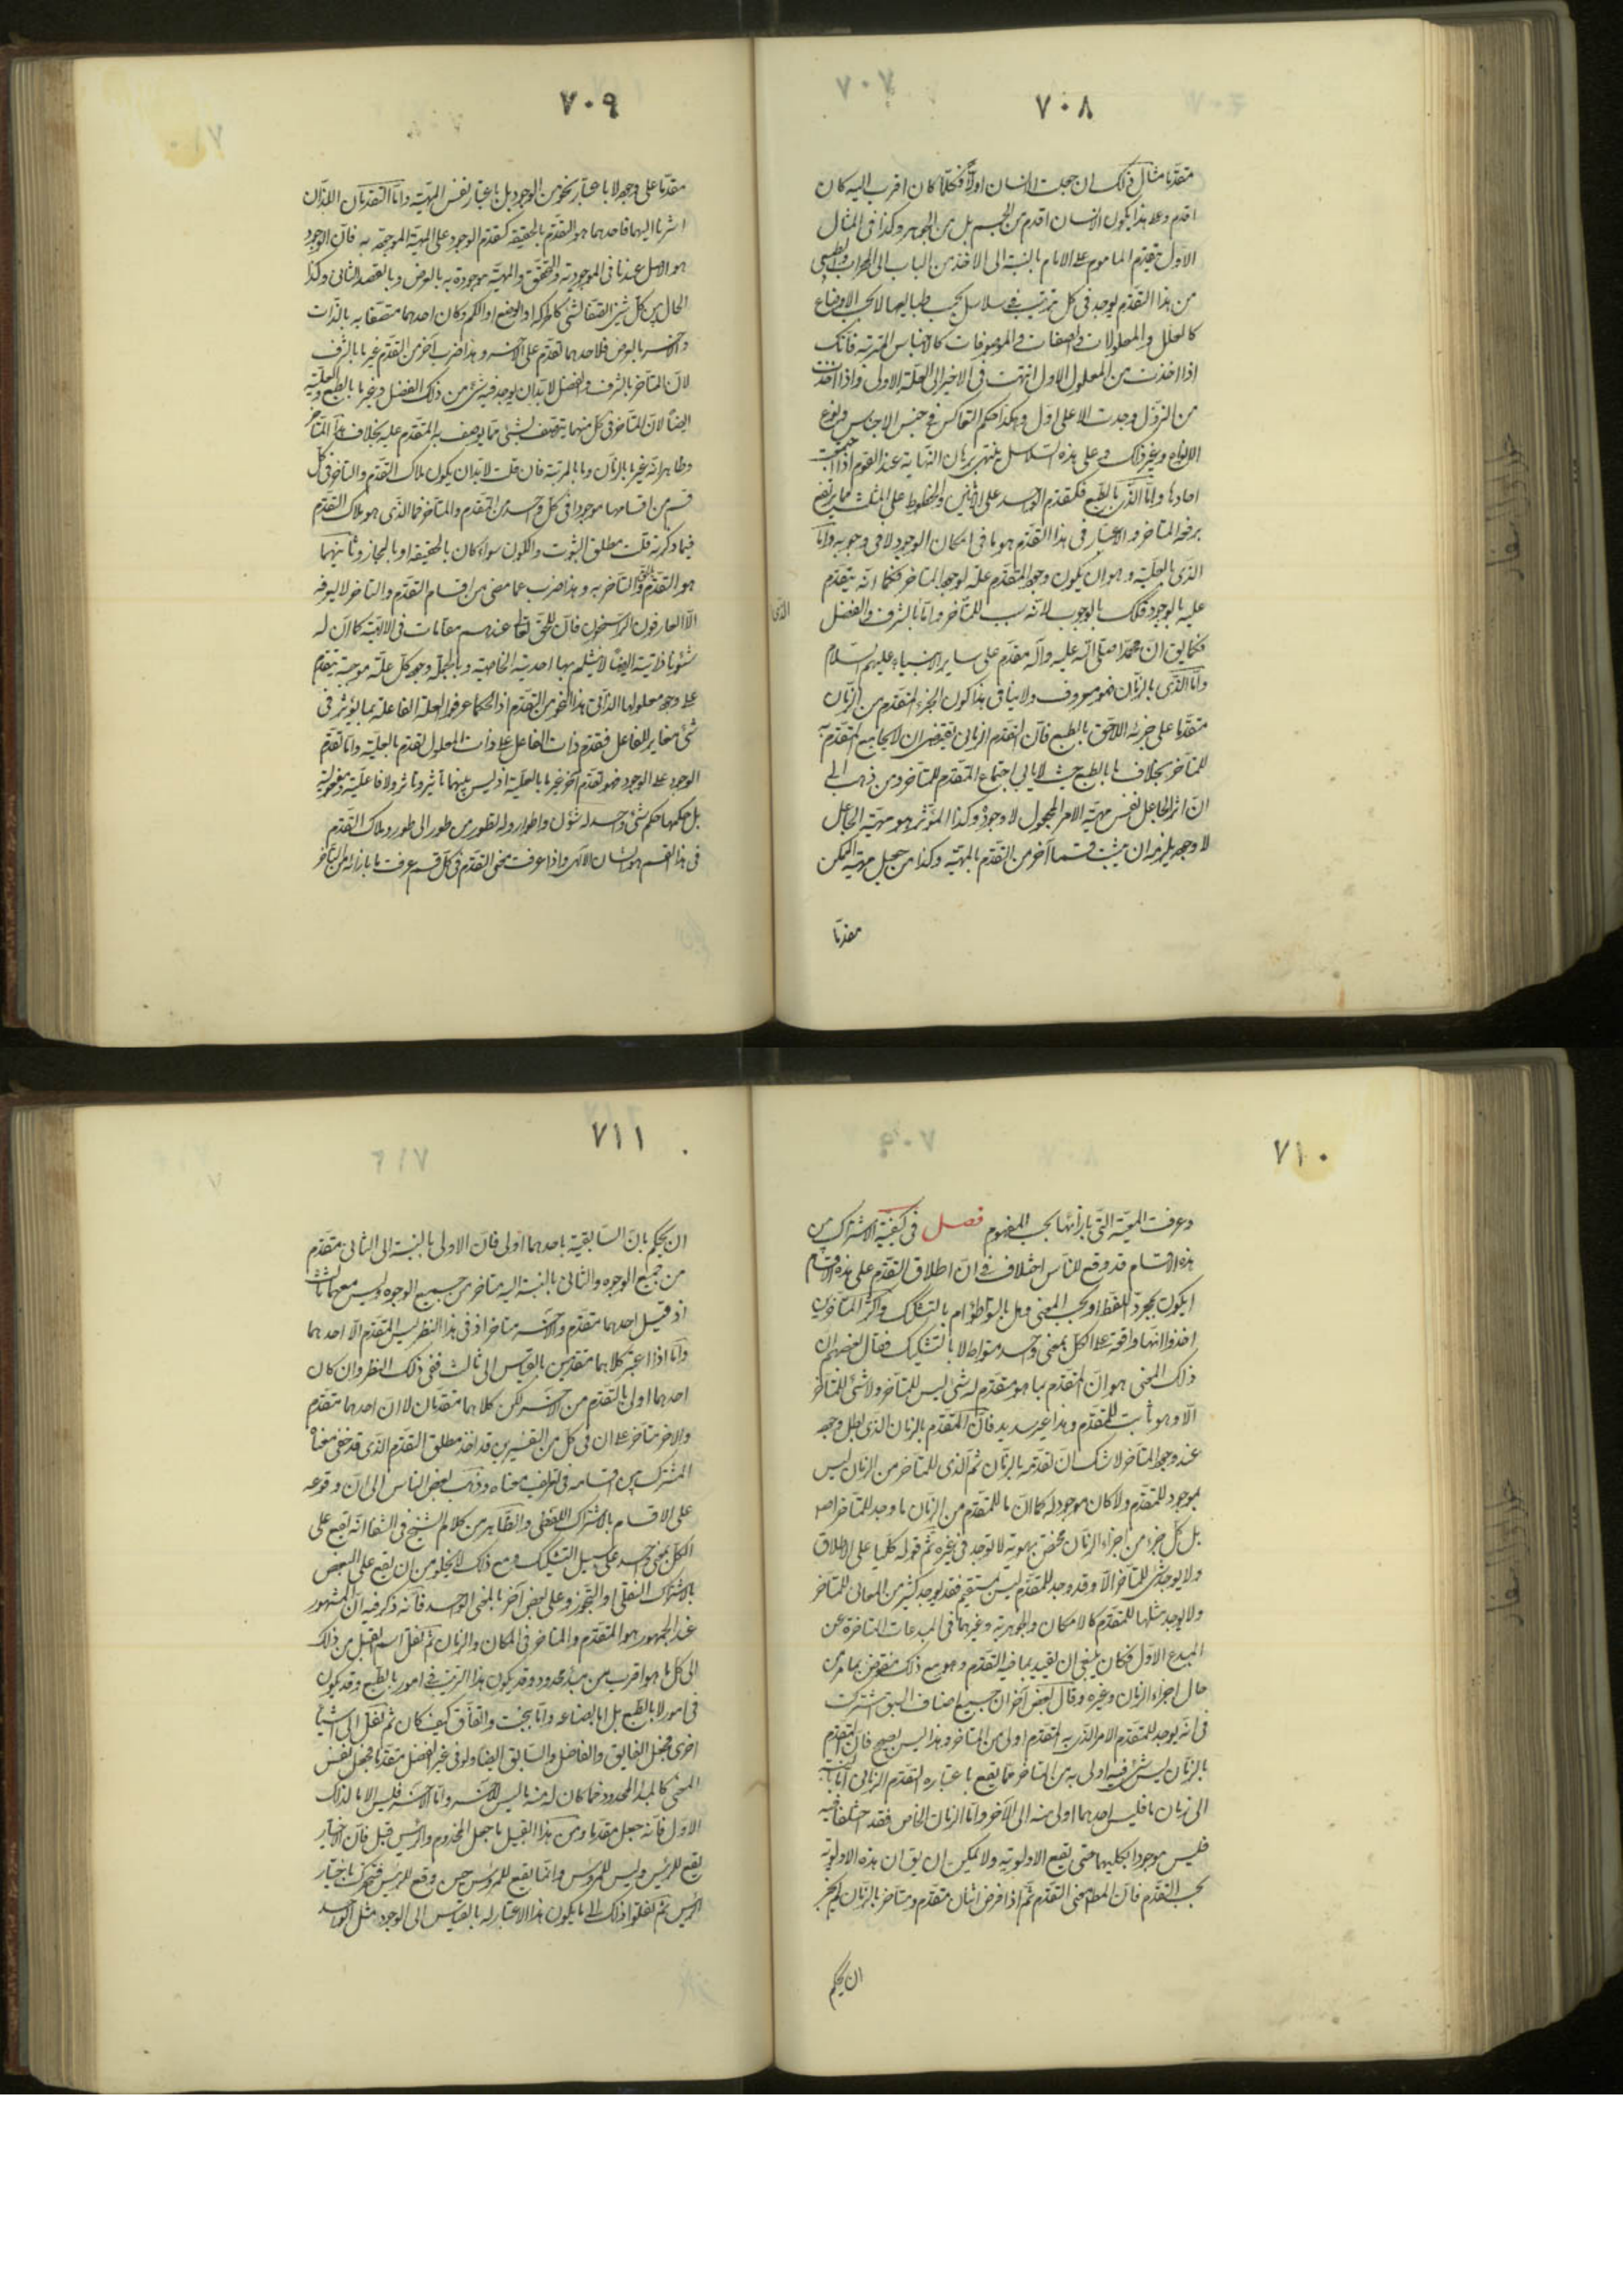 ٧٠٨
متقدّما مثال ذلك ان جعلت الانسان اولاً فكلّما كان اقرب اليه كان
اقدم وعلى هذا يكون الانسان اقدم من الجسم بل من الجوهر وكذا فى المثال
الاول يتقدم الماموم على الامام بالنسبة الى الاخذ من الباب الى المحراب والطبيعى
من هذا التقدّم يوجد فى كل ترتيب فى سلاسل بحسب طبايعها لا بحسب الاوضاع
كالعلل والمعلولات والصفات والموصوفات كالاجناس المترتبة فانّك
اذا اخذت من المعلول الاول انتهت فى الاخير الى العلّة الاولى واذا اخذت
من النزول وجدت الاعلى اول وهكذا حكم التعاكس فى جنس الاجناس ونوع
الانواع وغير ذلك وعلى هذه السلاسل يبتنى برهان النهاية عند القوم اذا اجتمعت
احادها وامّا الذى بالطبع فكتقدم الواحد على الاثنين والخطوط على المثلث مما يرتفع
برفعه المتاخر والاعتبار فى هذا التقدّم هو ما فى امكان الوجود لا فى وجوبه وامّا
الذى بالعلية وهو ان يكون وجود المتقدّم علّة لوجود المتاخر فكما انّه يتقدّم
عليه بالوجود فكذلك بالوجوب لانّه سبب للمتأخر وامّا بالشرف والفضل
فكما يق انّ محمدا صلّى اللّه عليه وآله مقدّم على ساير الانبياء عليهم السّلام
وامّا الذى بالزمان فهو معروف ولا ينافى هذا كون الجزء المتقدّم من الزّمان
متقدّما على جزئه اللاحق بالطبع فانّ التقدّم الزمانى يقتضى ان لا يجامع المتقدّم
للمتأخر بخلاف ما بالطبع حيث لا يابى اجتماع المتقدّم للمتأخر ومن ذهب الى
انّ اثر الجاعل نفس مهيّة الامر المجعول لا وجوده وكذا المؤثر هو مهيّة الجاعل
لا وجوده يلزمه ان يثبت قسما آخر من التقدّم بالمهيّة وكذا من جعل مهيّة الممكن
متقدّما
٧٠٩
متقدّما على وجوده لا باعتبار نحو من الوجود بل باعتبار نفس المهيّة وامّا التقدّمان اللذان
اشرنا اليهما فاحدهما هو التقدّم بالحقيقة كتقدّم الوجود على المهيّة الموجودة به فانّ الوجود
هو الاصل عندنا فى الموجودية والتحقّق والمهيّة موجودة به بالعرض وبالقصد الثانى وكذا
الحال بين كل شيئين اتّصفا بشئ كالحركة او الوضع او الكم وكان احدهما متّصفا به بالذّات
والآخر بالعرض فلاحدهما تقدّم على الآخر وهذا ضرب آخر من التقدّم غير ما بالشرف
لانّ المتأخر بالشرف والفضل لا بدّ ان يوجد فيه شئ من ذلك الفضل وغير ما بالطبع والعلّية
ايضاً لانّ المتأخر فى كل منهما يتّصف بشئ ممّا يوصف به المتقدّم عليه بخلاف هذا المتأخر
وظاهر انّه غير ما بالزمان وما بالمرتبة فان قلت لا بدّ ان يكون ملاك التقدّم والتاخر فى كل
قسم من اقسامها موجودا فى كل واحد من المتقدّم والمتأخر فما الذى هو ملاك التقدّم
فيما ذكرته قلت مطلق الثبوت والكون سواء كان بالحقيقة او بالمجاز وثانيهما
هو التقدّم بالحق والتأخر به وهذا ضرب غامض من اقسام التقدّم والتاخر لا يعرفه
الّا العارفون الراسخون فانّ للحقّ تعالى عندهم مقامات فى الالهيّة كما انّ له
شئونا ذاتية ايضاً لا ينثلم بها احديته الخاصية وبالجملة وجود كل علّة موجبة يتقدّم
على وجود معلولها الذاتى هذا النحو من التقدّم اذ الحكماء عرفوا العلة الفاعلة بما يؤثر فى
شئ مغاير للفاعل فتقدّم ذات الفاعل على ذات المعلول تقدّم بالعلّية وامّا تقدّم
الوجود على الوجود فهو تقدّم آخر غير ما بالعلّية اذ ليس بينهما تأثير وتأثر ولا فاعلية ومفعولية
بل حكمهما حكم شئ واحد له شئون واطوار وله تطور من طور الى طور وملاك التقدّم
فى هذا القسم هو الشان الالهى واذا عرفت معنى التقدّم فى كل قسم عرفت ما بازائه من التأخر
الذى
٧١٠
وعرفت المعيّة التى بازائهما بحسب المفهوم فصل فى كيفية الاشتراك بين
هذه الاقسام قد وقع للناس اختلاف فى انّ اطلاق التقدّم على هذه الاقسام
ايكون بمجرد اللفظ او بحسب المعنى وهل بالتواطؤ ام بالتشكيك واكثر المتأخرين
اخذوا انها واقعة على الكل بمعنى واحد متواط لا بالتشكيك فقال بعضهم ان
ذلك المعنى هو انّ المتقدّم بما هو متقدّم له شئ ليس للمتأخر ولا شئ للمتأخر
الّا وهو ثابت للمتقدّم وهذا غير سديد فانّ المتقدّم بالزمان الذى بطل وجوده
عند وجود المتاخر لا شك انّ تقدّمه بالزمان ثم الذى للمتاخر من الزمان ليس
بموجود للمتقدّم ولا كان موجودا له كما انّ ما للمتقدّم من الزمان ما وجد للمتأخر اصلا
بل كل جزء من اجزاء الزمان مختصّ بهوية لا توجد فى غيره ثم قوله كليا على الاطلاق
ولا يوجد شئ للمتأخر الّا وقد وجد للمتقدّم ليس بمستقيم فقد يوجد كثير من المعانى للمتأخر
ولا يوجد مثلها للمتقدّم كالامكان والجوهرية وغيرهما فى المبدعات المتاخرة عن
المبدع الاول فكان ينبغى ان يقيد بما فيه التقدّم وهو مع ذلك منتقض بما مر من
حال اجزاء الزمان وغيره وقال بعض آخر ان جميع اصناف السبق اشتركت
فى انّه يوجد للمتقدّم الامر الذى به المتقدّم اولى من المتاخر وهذا ليس بصحيح فانّ المتقدّم
بالزمان ليس شئ فيه اولى به من المتاخر مما يقع باعتباره التقدّم الزمانى امّا بالنسبة
الى زمان ما فليس احدهما اولى منه الى الآخر وامّا الزمان الخاص فقد اختلفا فيه
فليس موجودا لكليهما حتى يقع الاولوية ولا يمكن ان يق ان هذه الاولوية
بحسب التقدّم فانّ المط معنى التقدّم ثم اذا فرض اثنان متقدّم ومتأخر بالزمان لم يجز
ان يحكم
٧١١
ان يحكم بانّ السابقية باحدهما اولى فانّ الاولى بالنسبة الى الثانى متقدّم
من جميع الوجوه والثانى بالنسبة اليه متاخر من جميع الوجوه وليس معهما ثالث
اذ قيل احدهما متقدّم والآخر متاخر اذ فى هذا النظر ليس المتقدّم الّا احدهما
وامّا اذا اعتبر كلاهما متقدّمين بالقياس الى ثالث ففى ذلك النظر وان كان
احدهما اولى بالتقدّم من الآخر لكن كلاهما متقدّمان لا ان احدهما متقدّم
والآخر متأخر على ان فى كل من التفسيرين قد اخذ مطلق التقدّم الذى قد خفى معناه
المشترك بين اقسامه فى تعريف معناه وذهب بعض الناس الى انّ وقوعه
على الاقسام بالاشتراك اللفظى والظاهر من كلام الشيخ فى الشفا انّه يقع على
الكل بمعنى واحد على سبيل التشكيك ومع ذلك لا يخلو من ان يقع على البعض
بالاشتراك النقلى او التجوز وعلى بعض آخر بالمعنى الواحد فانّه ذكر فيه ان المشهور
عند الجمهور هو المتقدّم والمتاخر فى المكان والزمان ثم نقل اسم القبل من ذلك
الى كل ما هو اقرب من مبدء محدود وقد يكون هذا الترتيب فى امور بالطبع وقد يكون
فى امور لا بالطبع بل امّا بصناعة وامّا ببخت واتفاق كيف كان ثم نقل الى اشياء
اخرى فجعل الفايق والفاضل والسابق ايضا ولو فى غير الفضل متقدّما فجعل نفس
المعنى كالمبدأ المحدود فما كان له منه ما ليس للآخر وامّا الآخر فليس الا ما لذلك
الاول فانّه جعل متقدّما ومن هذا القبيل ما جعل المخدوم والرئيس قبل فان الاختيار
يقع للرئيس وليس للمرؤس وانّما يقع للمرؤس حين وقع للرئيس فيتحرك باختيار
الرئيس ثم نقلوا ذلك الى ما يكون هذا الاعتبار له بالقياس الى الوجود مثل الواحد